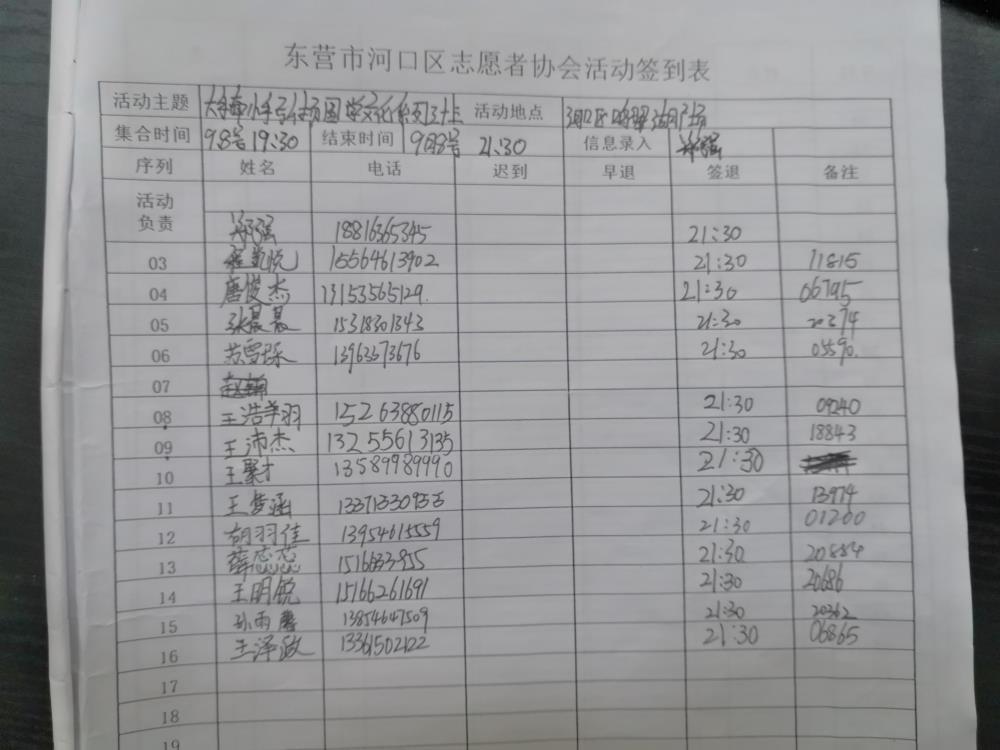 东营市河口区志愿者协会活动签到表
活动主题 大手牵小手 国学文化系列 活动地点 河口区鸣翠湖广场
集合时间 9.8号 19:30 结束时间 9月8号 21:30 信息录入
序列 姓名 电话 迟到 早退 签退 备注
活动负责 18816365345 21:30
03 程凯悦 15564613902 21:30 11815
04 唐俊杰 13153565129. 21:30 06795
05 张晨 15318301343 21:30 20374
06 苏雪琛 13963373676 21:30 05590.
07
08 王浩羊羽 15263880115 21:30 09240
09 王沛杰 13255613135 21:30 18843
10 王聚才 13589989990 21:30
11 王梦涵 21:30 13974
12 胡羽佳 13954615559 21:30 01200
13 薛芯芯 21:30 20884
14 王明锐 15166261691 21:30 20686
15 孙雨馨 13854647509 21:30 20362
16 王泽政 13361502122 21:30 06865
17
18
19